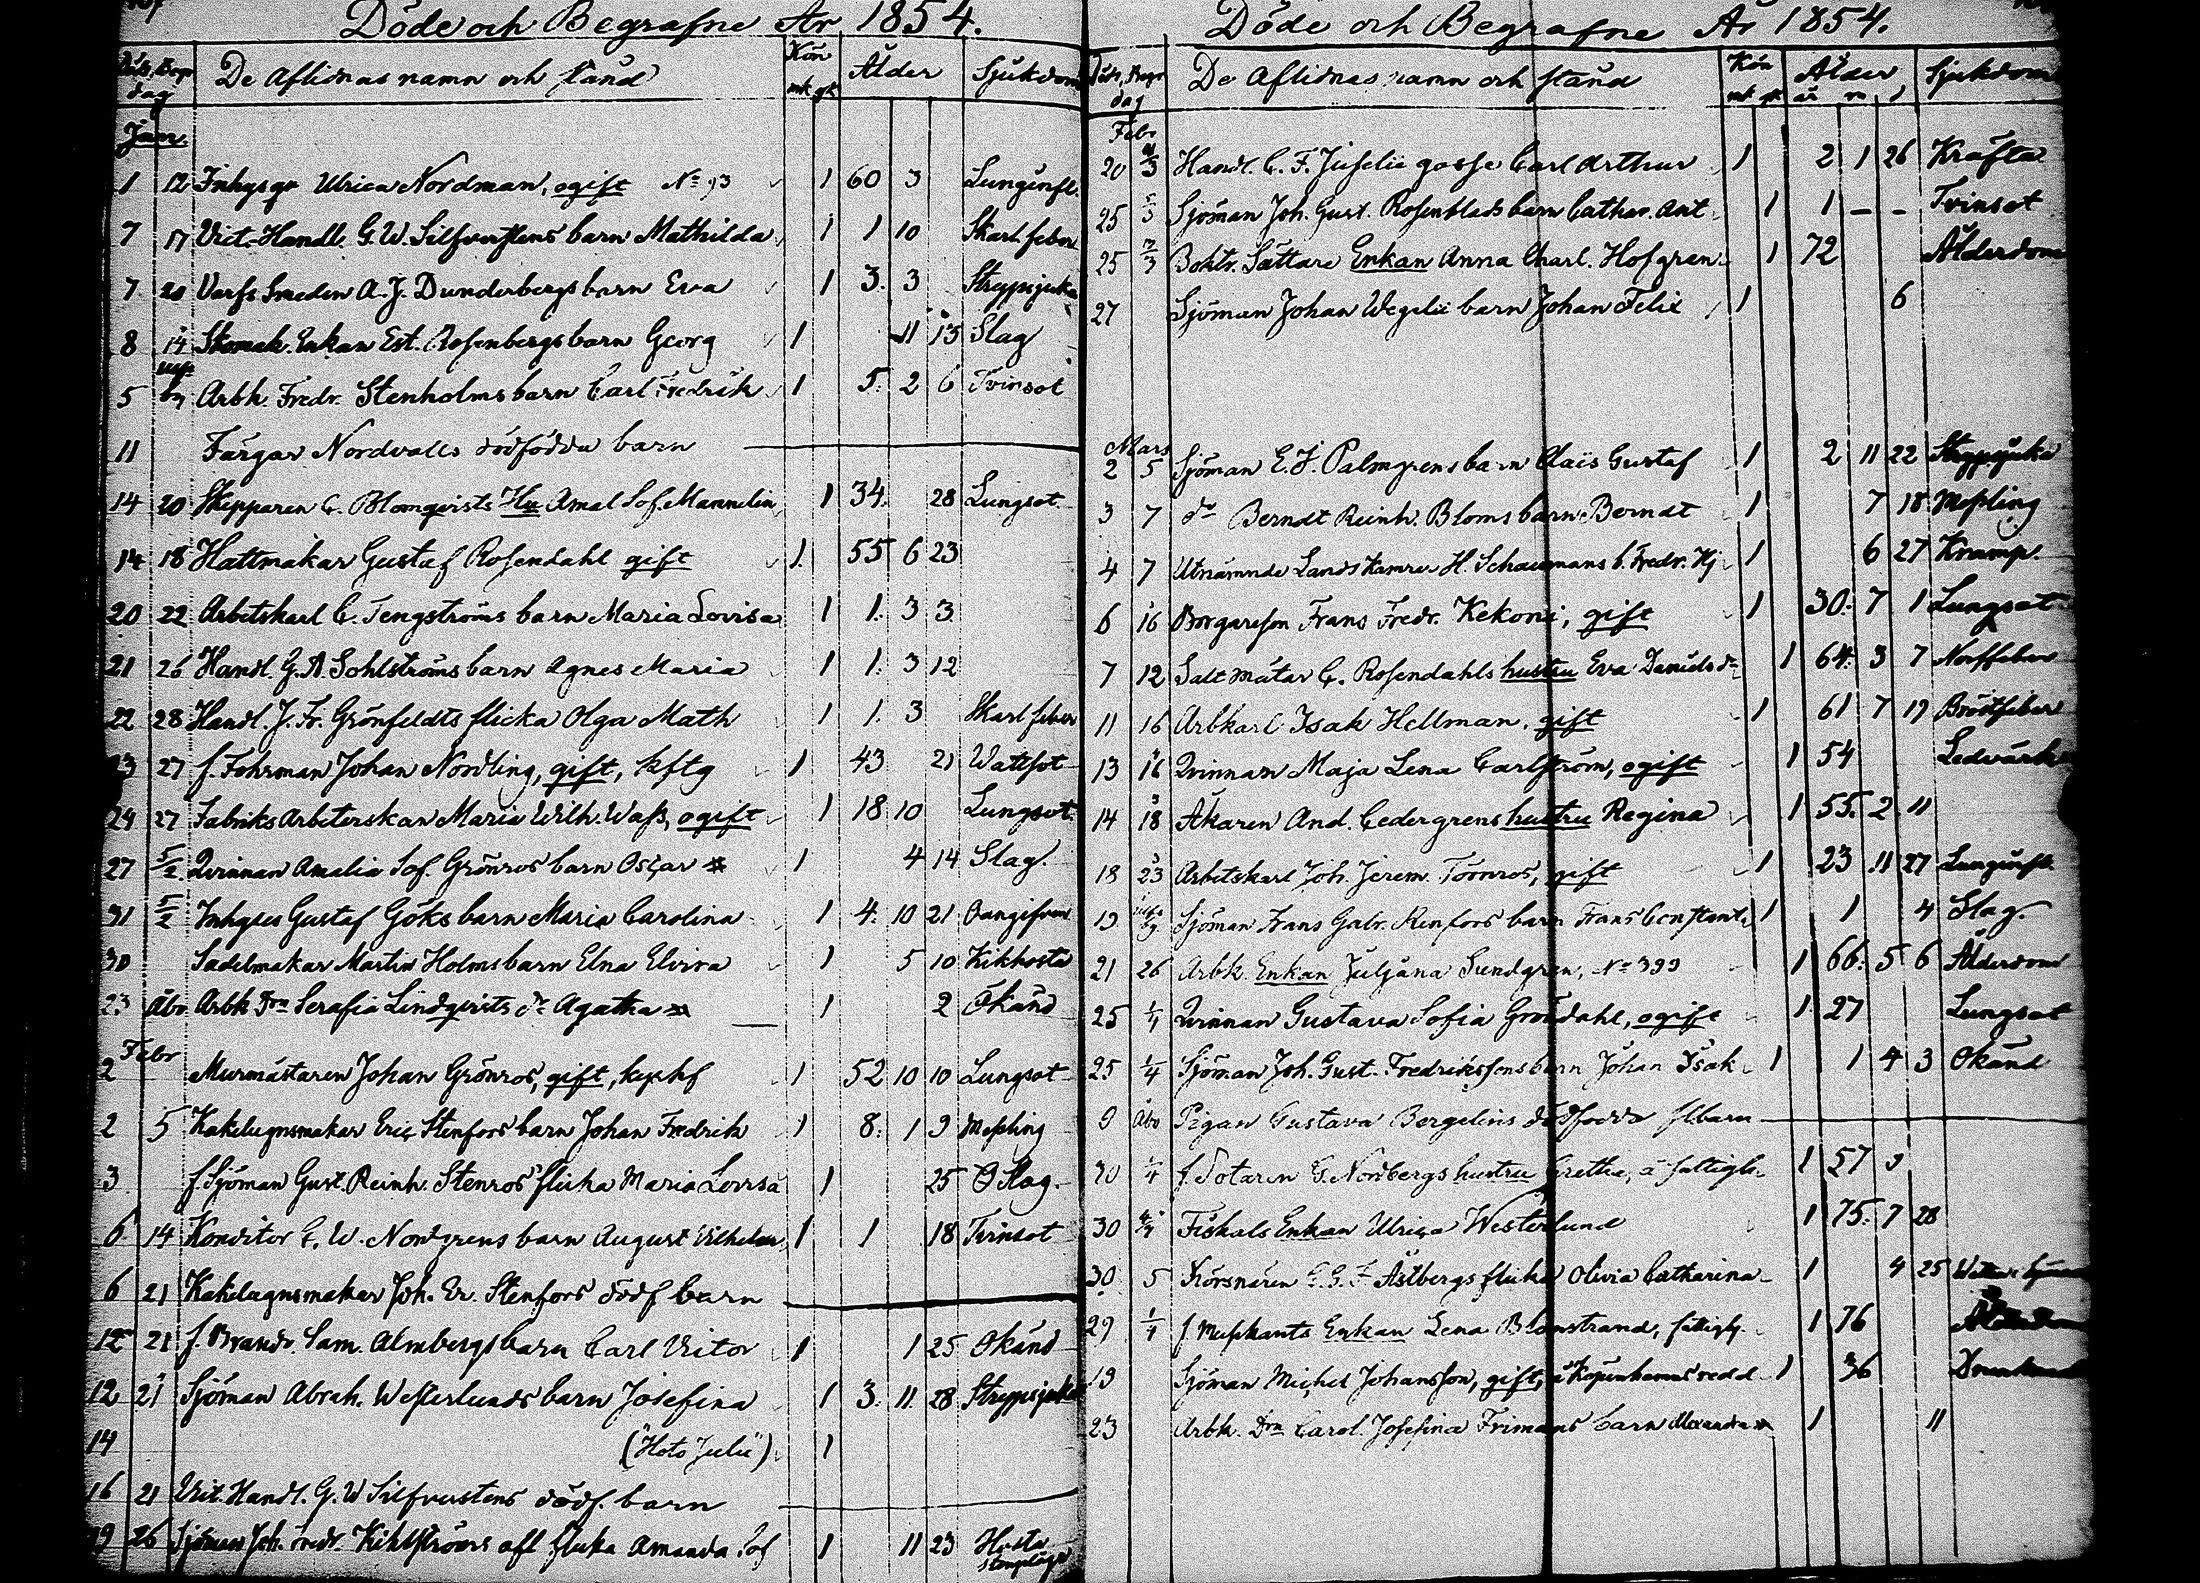 Döde och Begrafne År 1854.
Döds, Begr. dag De Aflidnas namn och stånd Kön mk qk Ålder Sjukdom
Jan.
1 12 Inhysqv Ulrica Nordman, ogift No 93 1 60 3 Lunginfl.
7 17 Vict. Handl. G. W. Silfverstens barn Mathilda 1 1 10 Skarl. feber
7 20 Varfs Smeden A. J. Dunderbergs barn Eva 1 3 3 Strypsjuka
8 14 Skomak. Enkan Est. Rosenbergs barn Georg 1 11 13 Slag
5 Arbk. Fredr. Stenholms barn Carl Fredrik 1 5 2 6 Tvinsot
11 Färgar Nordvalls dödfödda barn
14 20 Skepparen C. Blomqvists Hu Amal. Sof. Mannelin 1 34 28 Lungsot
14 18 Hattmakar Gustaf Rosendahl gift 1 55 6 23
20 22 Arbetskarl C. Tengströms barn Maria Lovisa 1 1 3 3
21 26 Handl. G. A. Sohlströms barn Agnes Maria 1 1 3 12
22 28 Handl. J. Fr. Grönfeldts flicka Olga Math 1 1 3 Skarl feber
23 27 f. Fohrman Johan Nordling, gift, 1 43 21 Vattsot
24 27 Fabriks Arbeterskan Maria Wilh. Wass, ogift 1 18 10 Lungsot.
27 5/2 Qvinnan Amalia Sof. Grönros barn Oscar 1 4 14 Slag.
31 5/2 Inhyses Gustaf Göks barn Maria Carolina 1 4 10 21 Oangifven
30 Sadelmakar Martin Holms barn Elna Elvira 1 5 10 Kikhosta
23 Åbo Arbk Drn Serafia Lindqvists dr Agatha 1 2 Okänd
Febr
2 Murmästaren Johan Grönros, gift, 1 52 10 10 Lungsot
2 5 Kakelugnsmakar Eric Stenfors barn Johan Fredrik 1 8 1 9 Messling
3 f. Sjöman Gust. Reinh. Stenros' flicka Maria Lovisa 1 25 Slag.
6 14 Konditor C. W. Nordgrens barn August Vilhelm 1 1 18 Tvinsot
6 21 Kakelugnsmakar Joh. Er. Stenfors dödf barn
12 21 f. Brandv. Sam. Almbergs barn Carl Victor 1 1 25 Okänd
12 21 Sjöman Abrah. Westerlunds barn Josefina 1 3 11 28 Strypsjuka
14 (Hoto Julii) 1
16 21 Vict. Handl. G. W Silfverstens dödf. barn
19 26 Sjöman Joh. Fredr. Kihlströms afl flicka Amanda Sof 1 11 23 Hosta
Döde och Begrafne År 1854.
Döds, Begr. dag De Aflidnas namn och stånd Kön mk qk Ålder år m d Sjukdom
Febr
20 Handl. C. F. Juselii gosse Carl Arthur 1 2 1 26 Kräfta
25 5/3 Sjöman Joh. Gust. Rosenblads barn Cathar. Ant. 1 1 - - Tvinsot
25 7/3 Boktr. Sättare Enkan Anna Charl. Hofgren 1 72 Ålderdom
27 Sjöman Johan Wegelii barn Johan Felix 1 6
Mars
2 5 Sjöman E. J. Palmgrens barn Claës Gustaf 1 2 11 22 Strypsjuka
3 7 do Berndt Reinh. Bloms barn Berndt 1 7 18 Messling
4 7 Utnämnde Landskamrer H. Schaumans b. Fredr. Hj 1 6 27 Kramp.
6 16 Borgaresson Frans Fredr. Kekoni, gift 1 30 7 1 Lungsot
7 12 Saltmätar C. Rosendahls hustru Eva Daniels dr 1 64 3 7 Nerffeber
11 16 Arbkarl Isak Hellman, gift 1 61 7 19 Bröstfeber
13 16 Qvinnan Maja Lena Carlström, ogift 1 54 Ledvärk
14 18 Åkaren And. Cedergrens hustru Regina 1 55 2 11
18 23 Arbetskarl Joh. Jerem. Törnros, gift 1 23 11 27 Lunginfl.
19 Sjöman Frans Gabr. Renfors barn Frans Constant. 1 1 4 Slag.
21 26 Arbk. Enkan Juljana Sundgren, No 399 1 66 5 6 Ålderdom
25 1/4 Qvinnan Gustava Sofia Gröndahl, ogift 1 27 Lungsot
25 1/4 Sjöman Joh. Gust. Fredrikssons barn Johan Isak 1 1 4 3 Okänd
9 Åbo Pigan Gustava Bergelins dödfödda flbarn
30 1/4 f. Rotaren G. Nordbergs hustru Gretha, å fattigh. 1 57 9
30 Fiskals Enkan Ulrica Westerlund 1 75 7 28
30 5 Körsnären C. G. F. Åstbergs flicka Olivia Catharina 1 4 25
29 1/4 f. Musikants Enkan Lena Blomstrand, fattigh. 1 76
19 Sjöman Michel Johansson, gift, å Köpenhamns redd 1 36
23 Arbk. Drn Carol. Josefina Frimans barn Alexandra 1 11